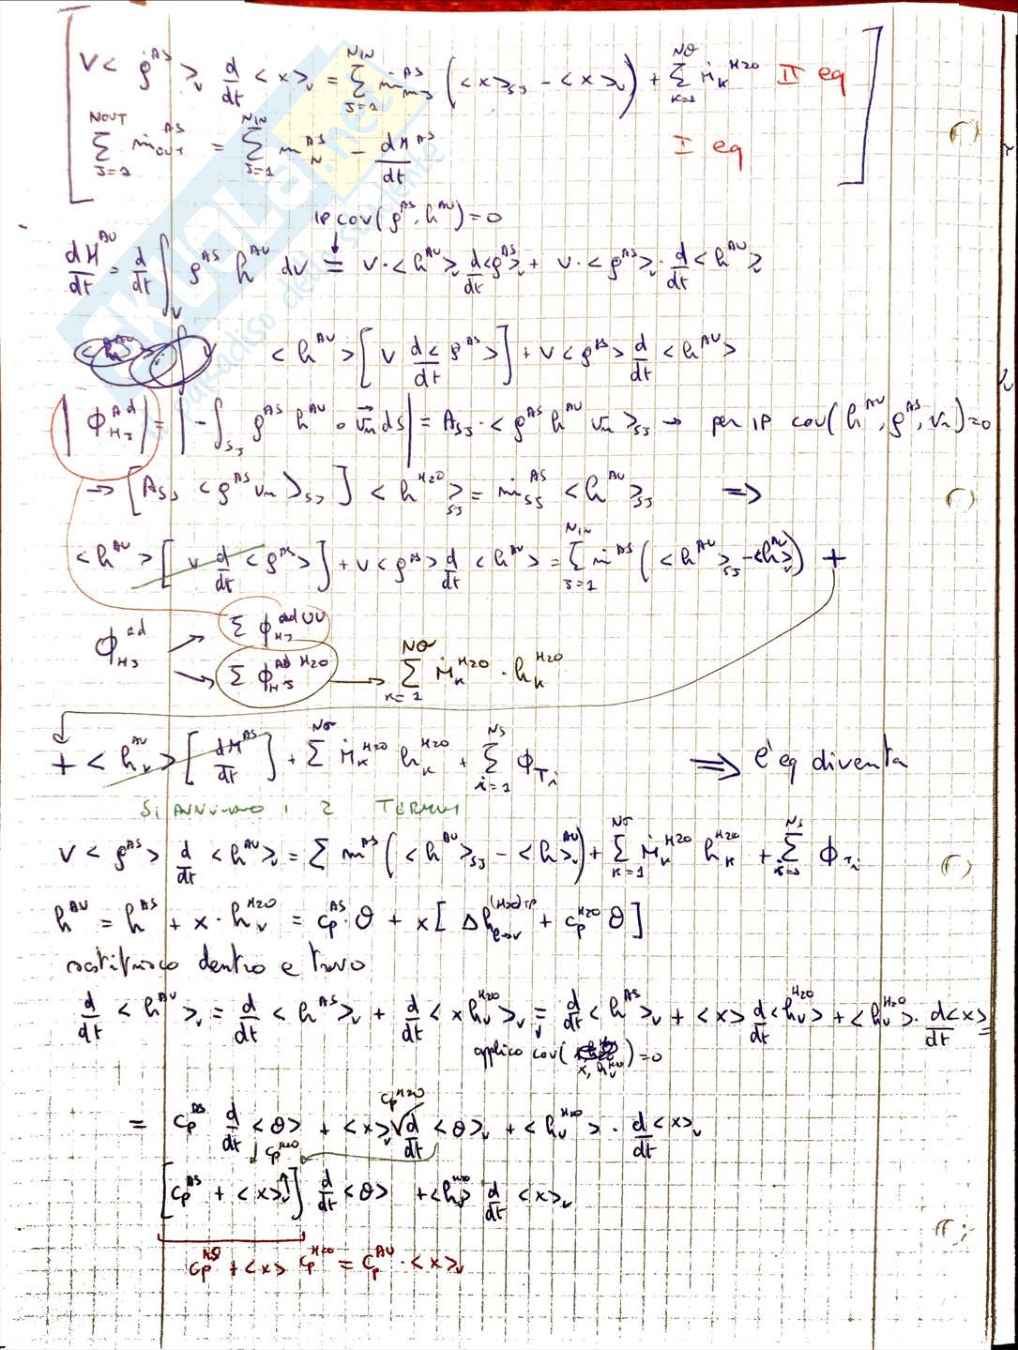 V < ρ^AS >_v d/dt < x >_v = Σ_{J=1}^{N_IN} ṁ_{inJ}^{AS} ( < x >_{SJ} - < x >_v ) + Σ_{K=1}^{Nσ} Ṁ_K^{H2O} II eq
Σ_{J=1}^{NOUT} ṁ_{OUT}^{AS} = Σ_{J=1}^{N_IN} ṁ_{IN}^{AS} - dM^{AS}/dt I eq
IP cov( ρ^AS, h^AU ) = 0
dH^AU/dt = d/dt ∫_V ρ^AS h^AU dV = V · < h^AU >_v d<ρ^AS>_v/dt + V · < ρ^AS >_v · d/dt < h^AU >_v
< h^AU > [ V d/dt < ρ^AS > ] + V < ρ^AS > d/dt < h^AU >
| Φ_{HJ}^{Ad} | = | - ∫_{SJ} ρ^AS h^AU ∘ v_n ds | = A_{SJ} · < ρ^AS h^AU v_n >_{SJ} → per IP cov( h^AU, ρ^AS, v_n ) = 0
→ [ A_{SJ} < ρ^AS v_n >_{SJ} ] < h^{H2O} >_{SJ} = ṁ_{SJ}^{AS} < h^AU >_{SJ} ⇒
< h^AU > [ V d/dt < ρ^AS > ] + V < ρ^AS > d/dt < h^AU > = Σ_{J=1}^{N_IN} ṁ^{AS} ( < h^AU >_{SJ} - < h^AU >_v ) +
Φ_{HJ}^{ad} → Σ Φ_{HJ}^{ad UU}
→ Σ Φ_{HJ}^{Ad H2O} → Σ_{K=1}^{Nσ} Ṁ_K^{H2O} · h_K^{H2O}
+ < h_v^AU > [ dM^AS/dt ] + Σ^{Nσ} Ṁ_K^{H2O} h_K^{H2O} + Σ_{i=1}^{Ns} Φ_{Ti} ⇒ l'eq diventa
SI ANNULLANO I 2 TERMINI
V < ρ^AS > d/dt < h^AU >_v = Σ ṁ^AS ( < h^AU >_{SJ} - < h^AU >_v ) + Σ_{K=1}^{Nσ} Ṁ_K^{H2O} h_K^{H2O} + Σ^{Ns} Φ_{Ti}
h^AU = h^AS + x · h_v^{H2O} = c_p^AS · θ + x [ Δh_{evav}^{(H2O)TP} + c_p^{H2O} θ ]
sostituisco dentro e trovo
d/dt < h^AU >_v = d/dt < h^AS >_v + d/dt < x h_v^{H2O} >_v = d/dt < h^AS >_v + < x > d/dt < h_v^{H2O} > + < h_v^{H2O} > · d<x>/dt =
applico cov( x, h_v^{H2O} ) = 0
= c_p^AS d/dt < θ > + < x >_v c_p^{H2O} d/dt < θ >_v + < h_v^{H2O} > · d/dt < x >_v
[ c_p^AS + < x >_v c_p^{H2O} ] d/dt < θ > + < h_v^{H2O} > d/dt < x >_v
c_p^AS + < x > c_p^{H2O} = c_p^AU · < x >_v